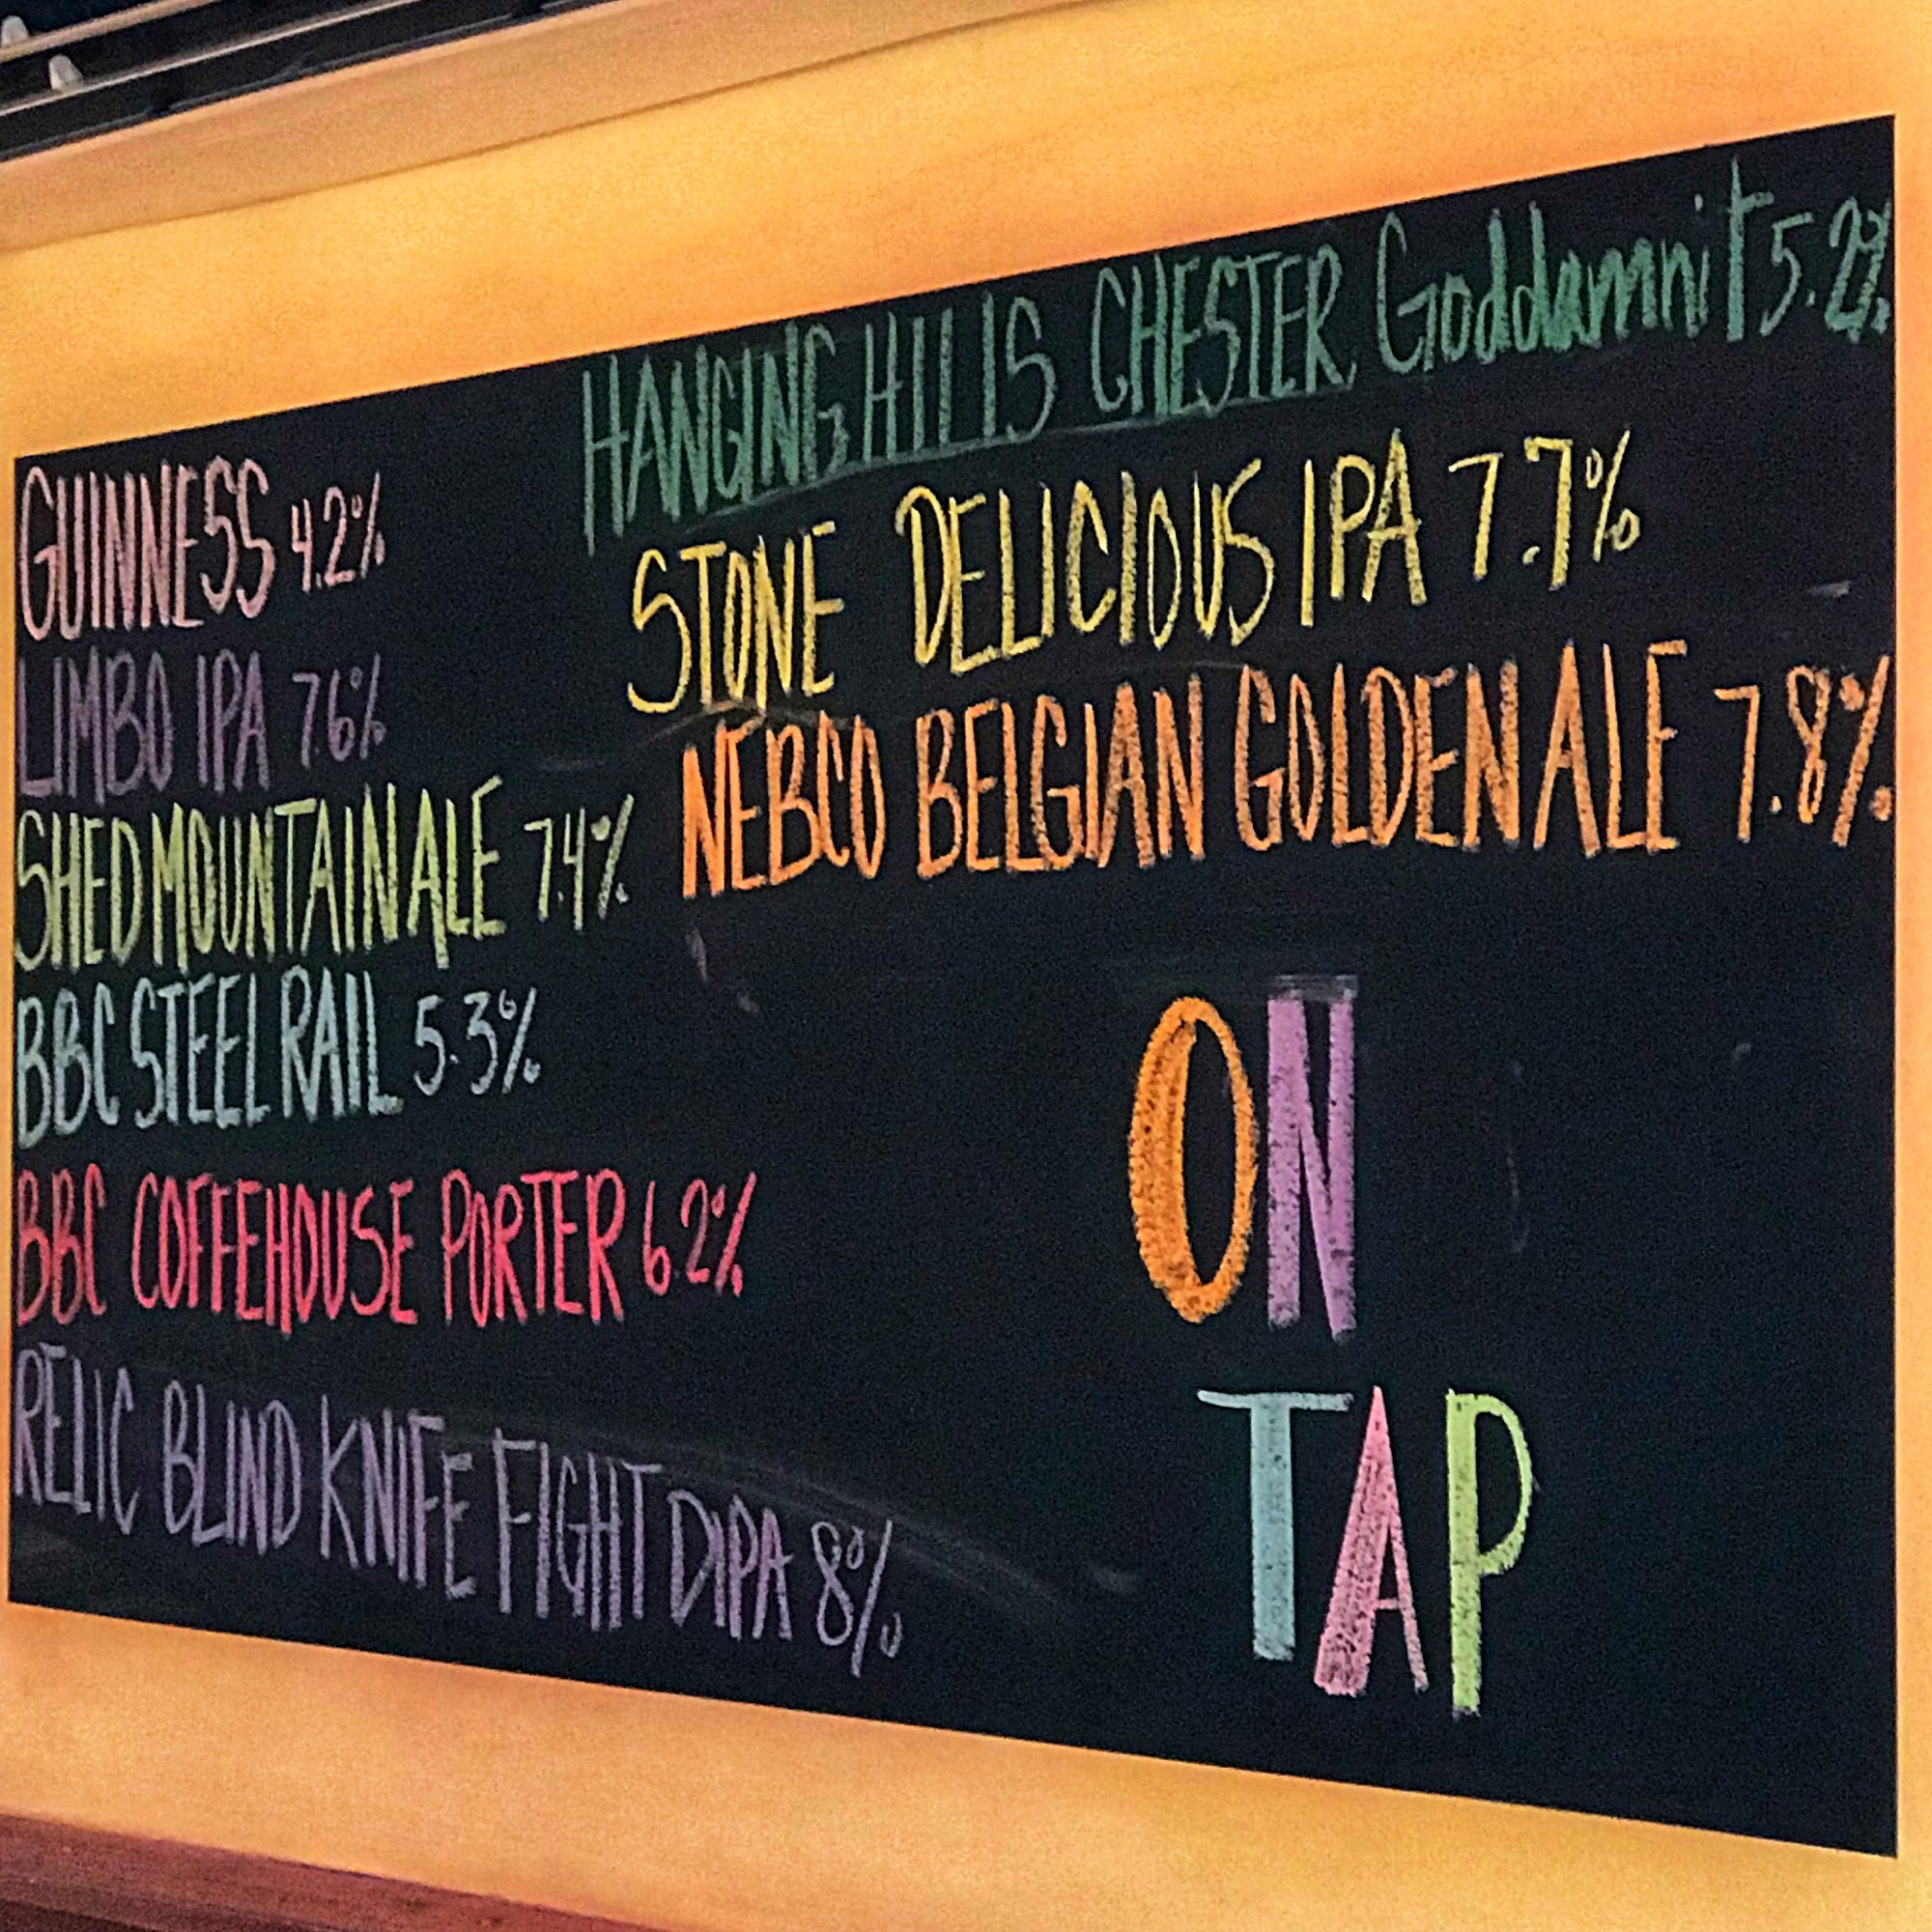 GUINNESS 4.2%
LIMBO IPA 7.6%
SHED MOUNTAIN ALE 7.4%
BBC STEEL RAIL 5.3%
BBC COFFEEHOUSE PORTER 6.2%
RELIC BLIND KNIFE FIGHT DIPA 8%
HANGING HILLS CHESTER Goddamnit 5.2%
STONE DELICIOUS IPA 7.7%
NEBCO BELGIAN GOLDEN ALE 7.8%
ON
TAP